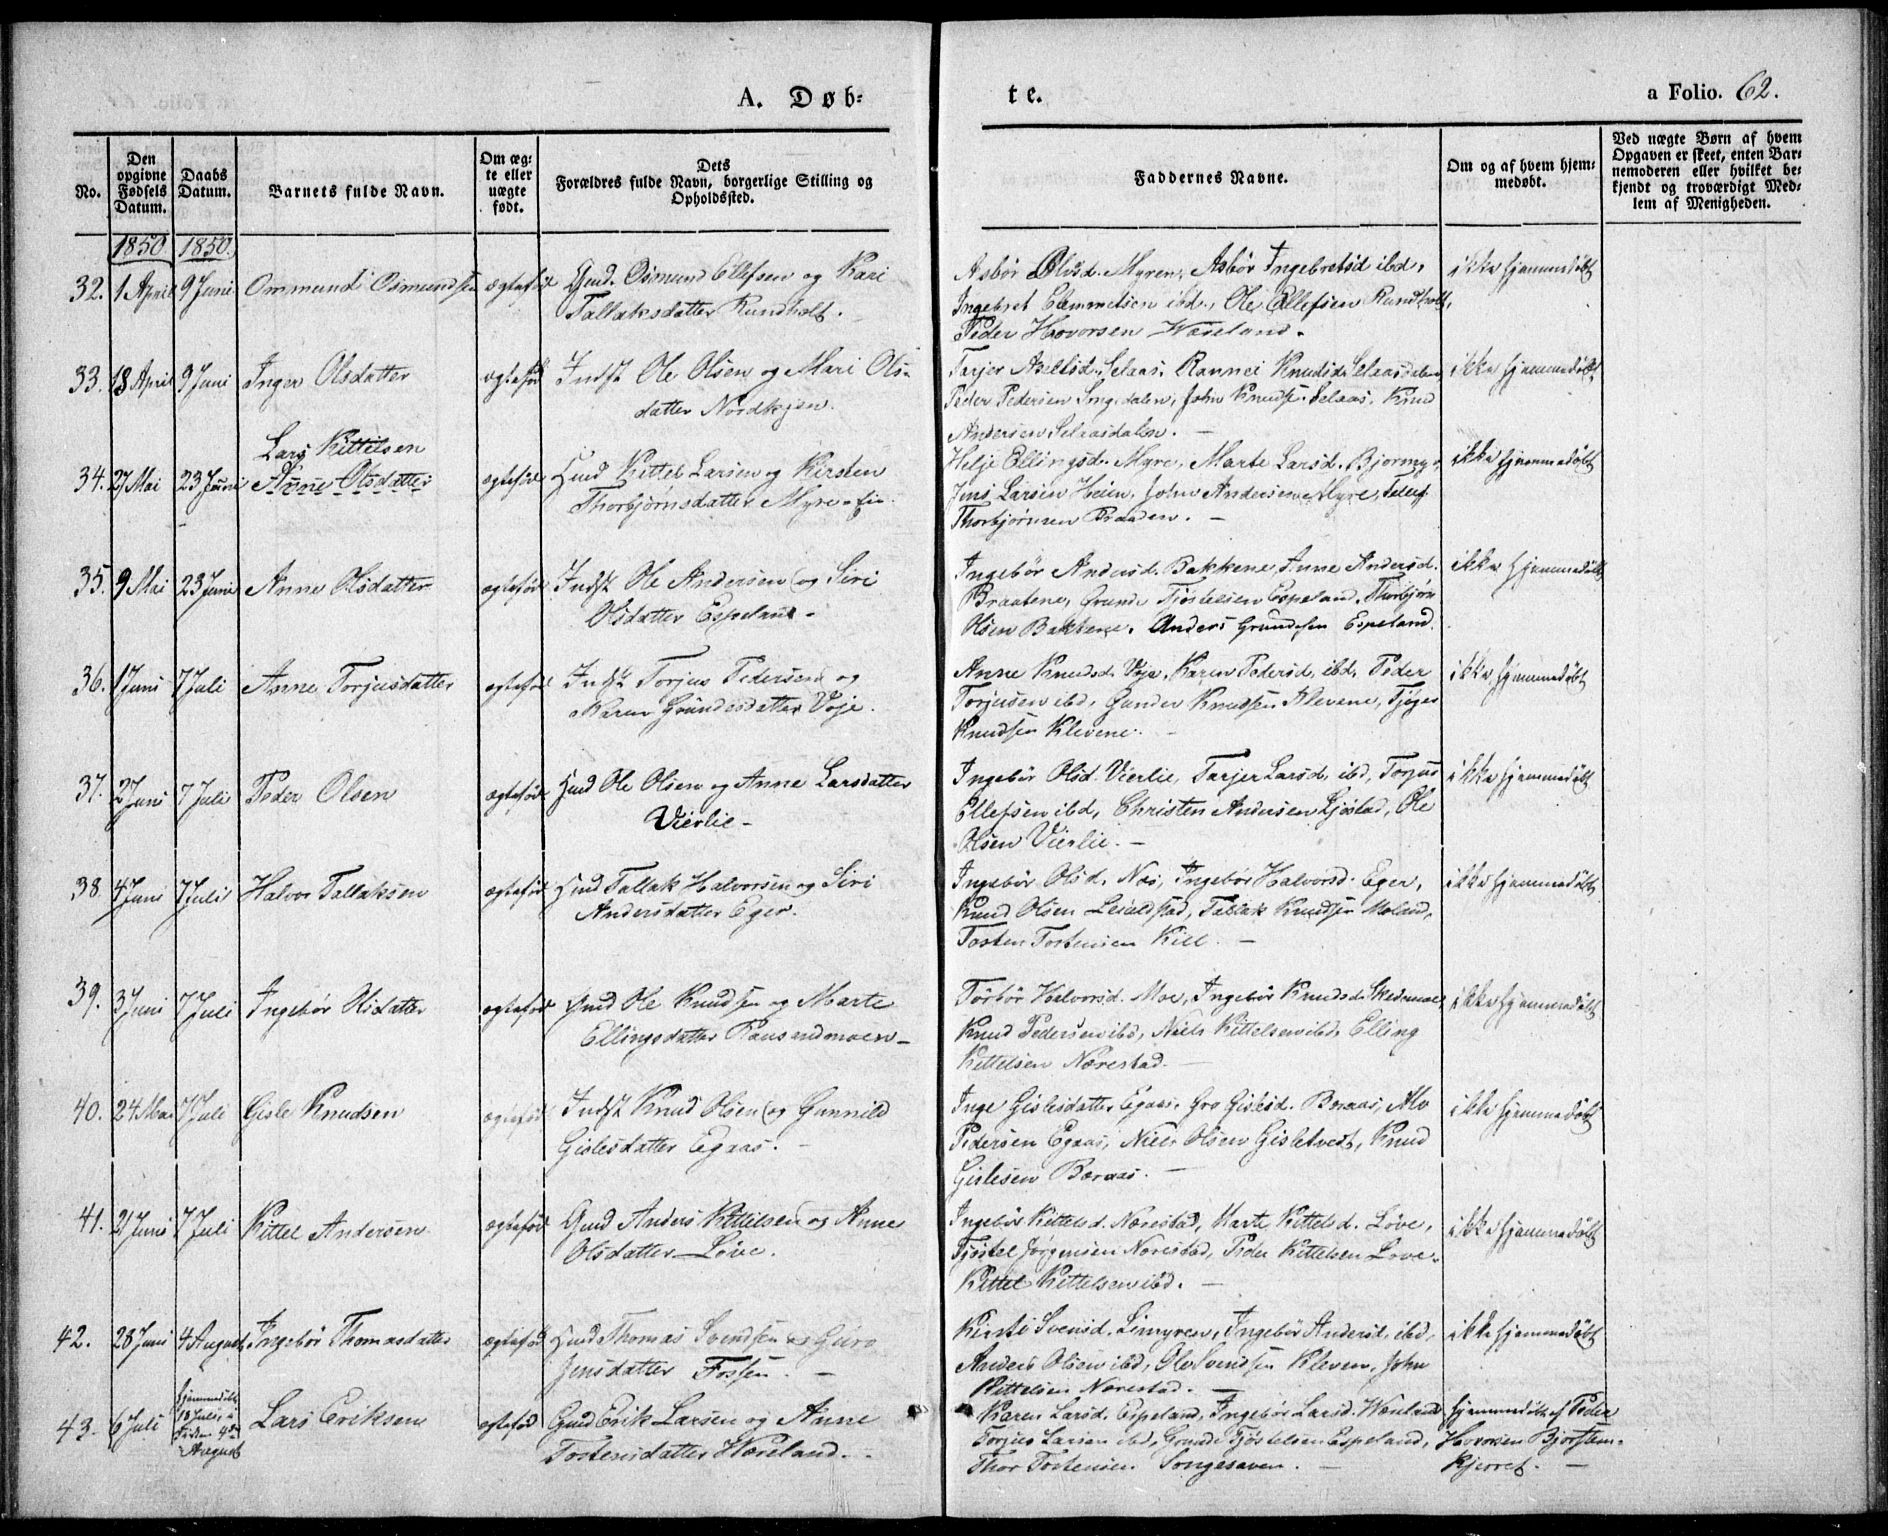 A. Døb-
te.
a Folio. 62.
No.
Den opgivne Fødsels Datum.
Daabs Datum.
Barnets fulde Navn.
Om ægte eller uægte født.
Dets Forældres fulde Navn, borgerlige Stilling og Opholdssted.
Faddernes Navne.
Om og af hvem hjemmedøbt.
Ved uægte Børn af hvem Opgaven er skeet, enten Barnemoderen eller hvilket bekjendt og troværdigt Medlem af Menigheden.
1850. 1850.
32. 1 April 9 Juni Ommund Osmundsen ægtefød Gmd. Osmund Ellefsen og Kari
Tallaksdatter Rundholt.
Asbør Olsd. Myren, Asbør Ingebretsd ibd,
Ingebret Emmetsen ibd., Ole Ellefsen Rundholt,
Peder Hovorsen Waseland.
ikke hjemmedøbt
33. 18 April 9 Juni Inger Olsdatter ægtefød Indst Ole Olsen og Mari Ols-
datter Nordkjen.
Tarjer Axelsd. Selaas, Rannei Knudsd. Selaasdalen,
Peder Pedersen Ingedalen, John Knudsen Selaas, Knud
Andersen Selaasdalen.
ikke hjemmedøbt
Lars Kittilsen
34. 27 Mai 23 Juni Anne Olsdatter ægtefød Huusmd Kittel Larsen og Kirsten
Thorbjørnsdatter Myre-
Helje Ellingsd. Myre, Marte Larsd. Bjormyr,
Jens Larsen Heien, John Andersen Myre, Tellef
Thorbjørnsen Braaden.
ikke hjemmedøbt
35. 9 Mai 23 Juni Anne Olsdatter ægtefød Indst Ole Andersen og Siri
Olsdatter Espeland.
Ingebør Andersd. Bakkene, Anne Andersd.
Braatene, Grunde Tjøstelsen Espeland, Thorbjørn
Olsen Bakkene, Anders Grundesen Espeland.
ikke hjemmedøbt
36. 1 Juni 7 Juli Anne Torjusdatter ægtefød Indst Torjus Pedersen og
Karen Grundesdatter Voje.
Anne Knudsd. Voje, Karen Pedersd. ibd, Peder
Torjusen ibd, Gunder Knudsen Klevene, Tjøger
Knudsen Klevene.
ikke hjemmedøbt
37. 2 Juni 7 Juli Peder Olsen ægtefød Hmd Ole Olsen og Anne Larsdatter
Vierlie
Ingebør Olsd. Vierlie, Tarjer Larsd, ibd, Torjus
Ellefsen ibd, Christen Andersen Ljøstad, Ole
Olsen Vierlie.
ikke hjemmedøbt
38. 4 Juni 7 Juli Halvor Tallaksen ægtefød Hmd Tallak Halvorsen og Siri
Andersdatter Eger.
Ingebør Olsd. Næs, Ingebør Halvorsd. Eger,
Knud Olsen Leialdstad, Tallak Knudsen Moland,
Tosten Tostensen Kill.
ikke hjemmedøbt
39. 3 Juni 7 Juli Ingebør Olsdatter ægtefød Gmd Ole Knudsen og Marte
Ellingsdatter Rausandmoen
Torbør Halvorsd. Moe, Ingebør Knudsd. Skedsmoe,
Knud Pedersen ibd, Niels Kittelsen ibd, Elling
Kittelsen Nærestad.
ikke hjemmedøbt
40. 24 Mai 7 Juli Gisle Knudsen ægtefød Indst Knud Olsen og Gunnild
Gislesdatter Egaas.
Inge Gislesdatter Egaas, Gro Gislesd. Boraas, Alv
Pedersen Egaas, Niels Olsen Gisletvedt, Knud
Gislesen Boraas.
ikke hjemmedøbt
41. 21 Juni 7 Juli Kittel Andersen ægtefød Gmd Anders Kittelsen og Anne
Olsdatter Løve.
Ingebør Kittelsd. Nærestad, Marte Kittelsd. Løve,
Tjøstel Jørgensen Nærestad, Peder Kittelsen Løve,
Kittel Kittelsen ibd.
ikke hjemmedøbt
42. 28 Juni 4 August Ingebør Thomasdatter ægtefød Hmd Thomas Svendsen og Guro
Jensdatter Fossen.
Kirsti Svensd. Limyren, Ingebør Andersd. ibd,
Anders Olsen ibd, Ole Svendsen Kleven, John
Kittelsen Nærestad.
ikke hjemmedøbt
43. 6 Juli hjemmedøbt 18 Juli, i Kirken 4de August Lars Eriksen ægtefød Gmd Erik Larsen og Anne
Tostensdatter Wæneland.
Karen Larsd. Espeland, Ingebør Larsd. Wæneland
Torjus Larsen ibd, Grunde Tjøstelsen Espeland,
Thor Tostensen Songesaven.
hjemmedøbt af Peder
Hovorsen Bjorsten-
kjerret.